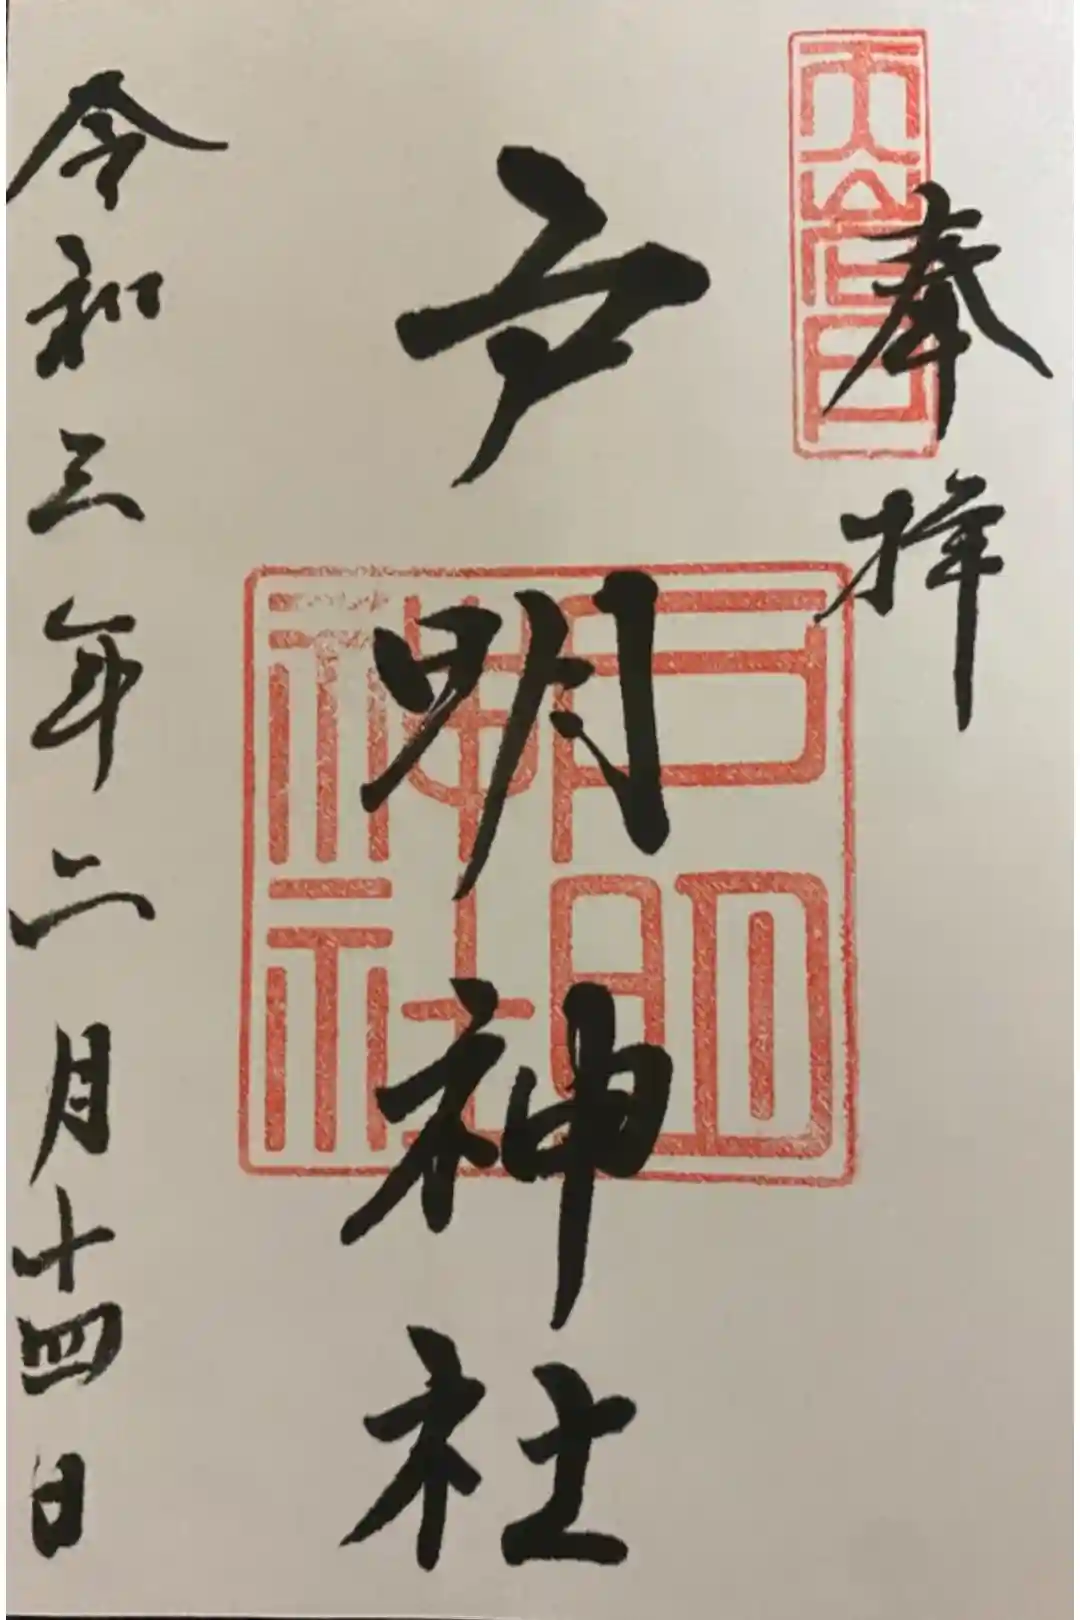 奉拝
戸明神社
戸明
神社
令和三年二月十四日